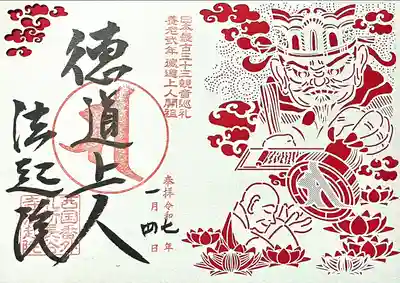 日本最古三十三観音巡礼
養老弐年徳道上人開祖
奉拝令和七年
一月四日
徳道上人
法起院
西国番外